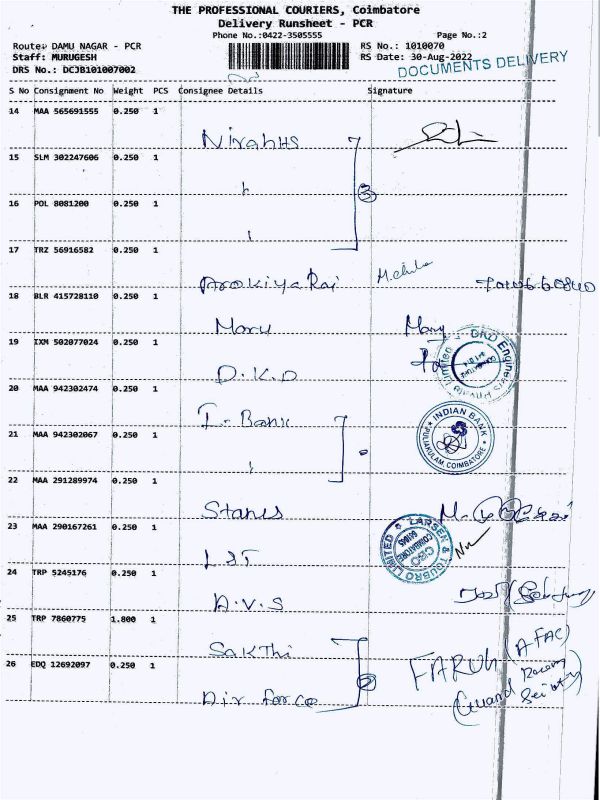 THE PROFESSIONAL COURIERS, Coimbatore
Delivery Runsheet - PCR
Phone No.:0422-3505555 Page No.:2
Route: DAMU NAGAR - PCR RS No.: 1010070
Staff: MURUGESH RS Date: 30-Aug-2022
DRS No.: DCJB101007002 DOCUMENTS DELIVERY
S No Consignment No Weight PCS Consignee Details Signature
14 MAA 565691555 0.250 1
15 SLM 302247606 0.250 1
16 POL 8081200 0.250 1
3
17 TRZ 56916582 0.250 1
Arokiya Raj
18 BLR 415728110 0.250 1
Mary Mary
19 IXM 502077024 0.250 1
D.K.D
20 MAA 942302474 0.250 1
I-Bank
INDIAN BANK
PULIAKULAM, COIMBATORE
21 MAA 942302067 0.250 1
22 MAA 291289974 0.250 1
Stanes
23 MAA 290167261 0.250 1
L&T
LARSEN & TOUBRO LIMITED
COIMBATORE
24 TRP 5245176 0.250 1
A.V.S
25 TRP 7860775 1.800 1
Sakthi
26 EDQ 12692097 0.250 1
Air force
2
(AFAC)
(Guard Room